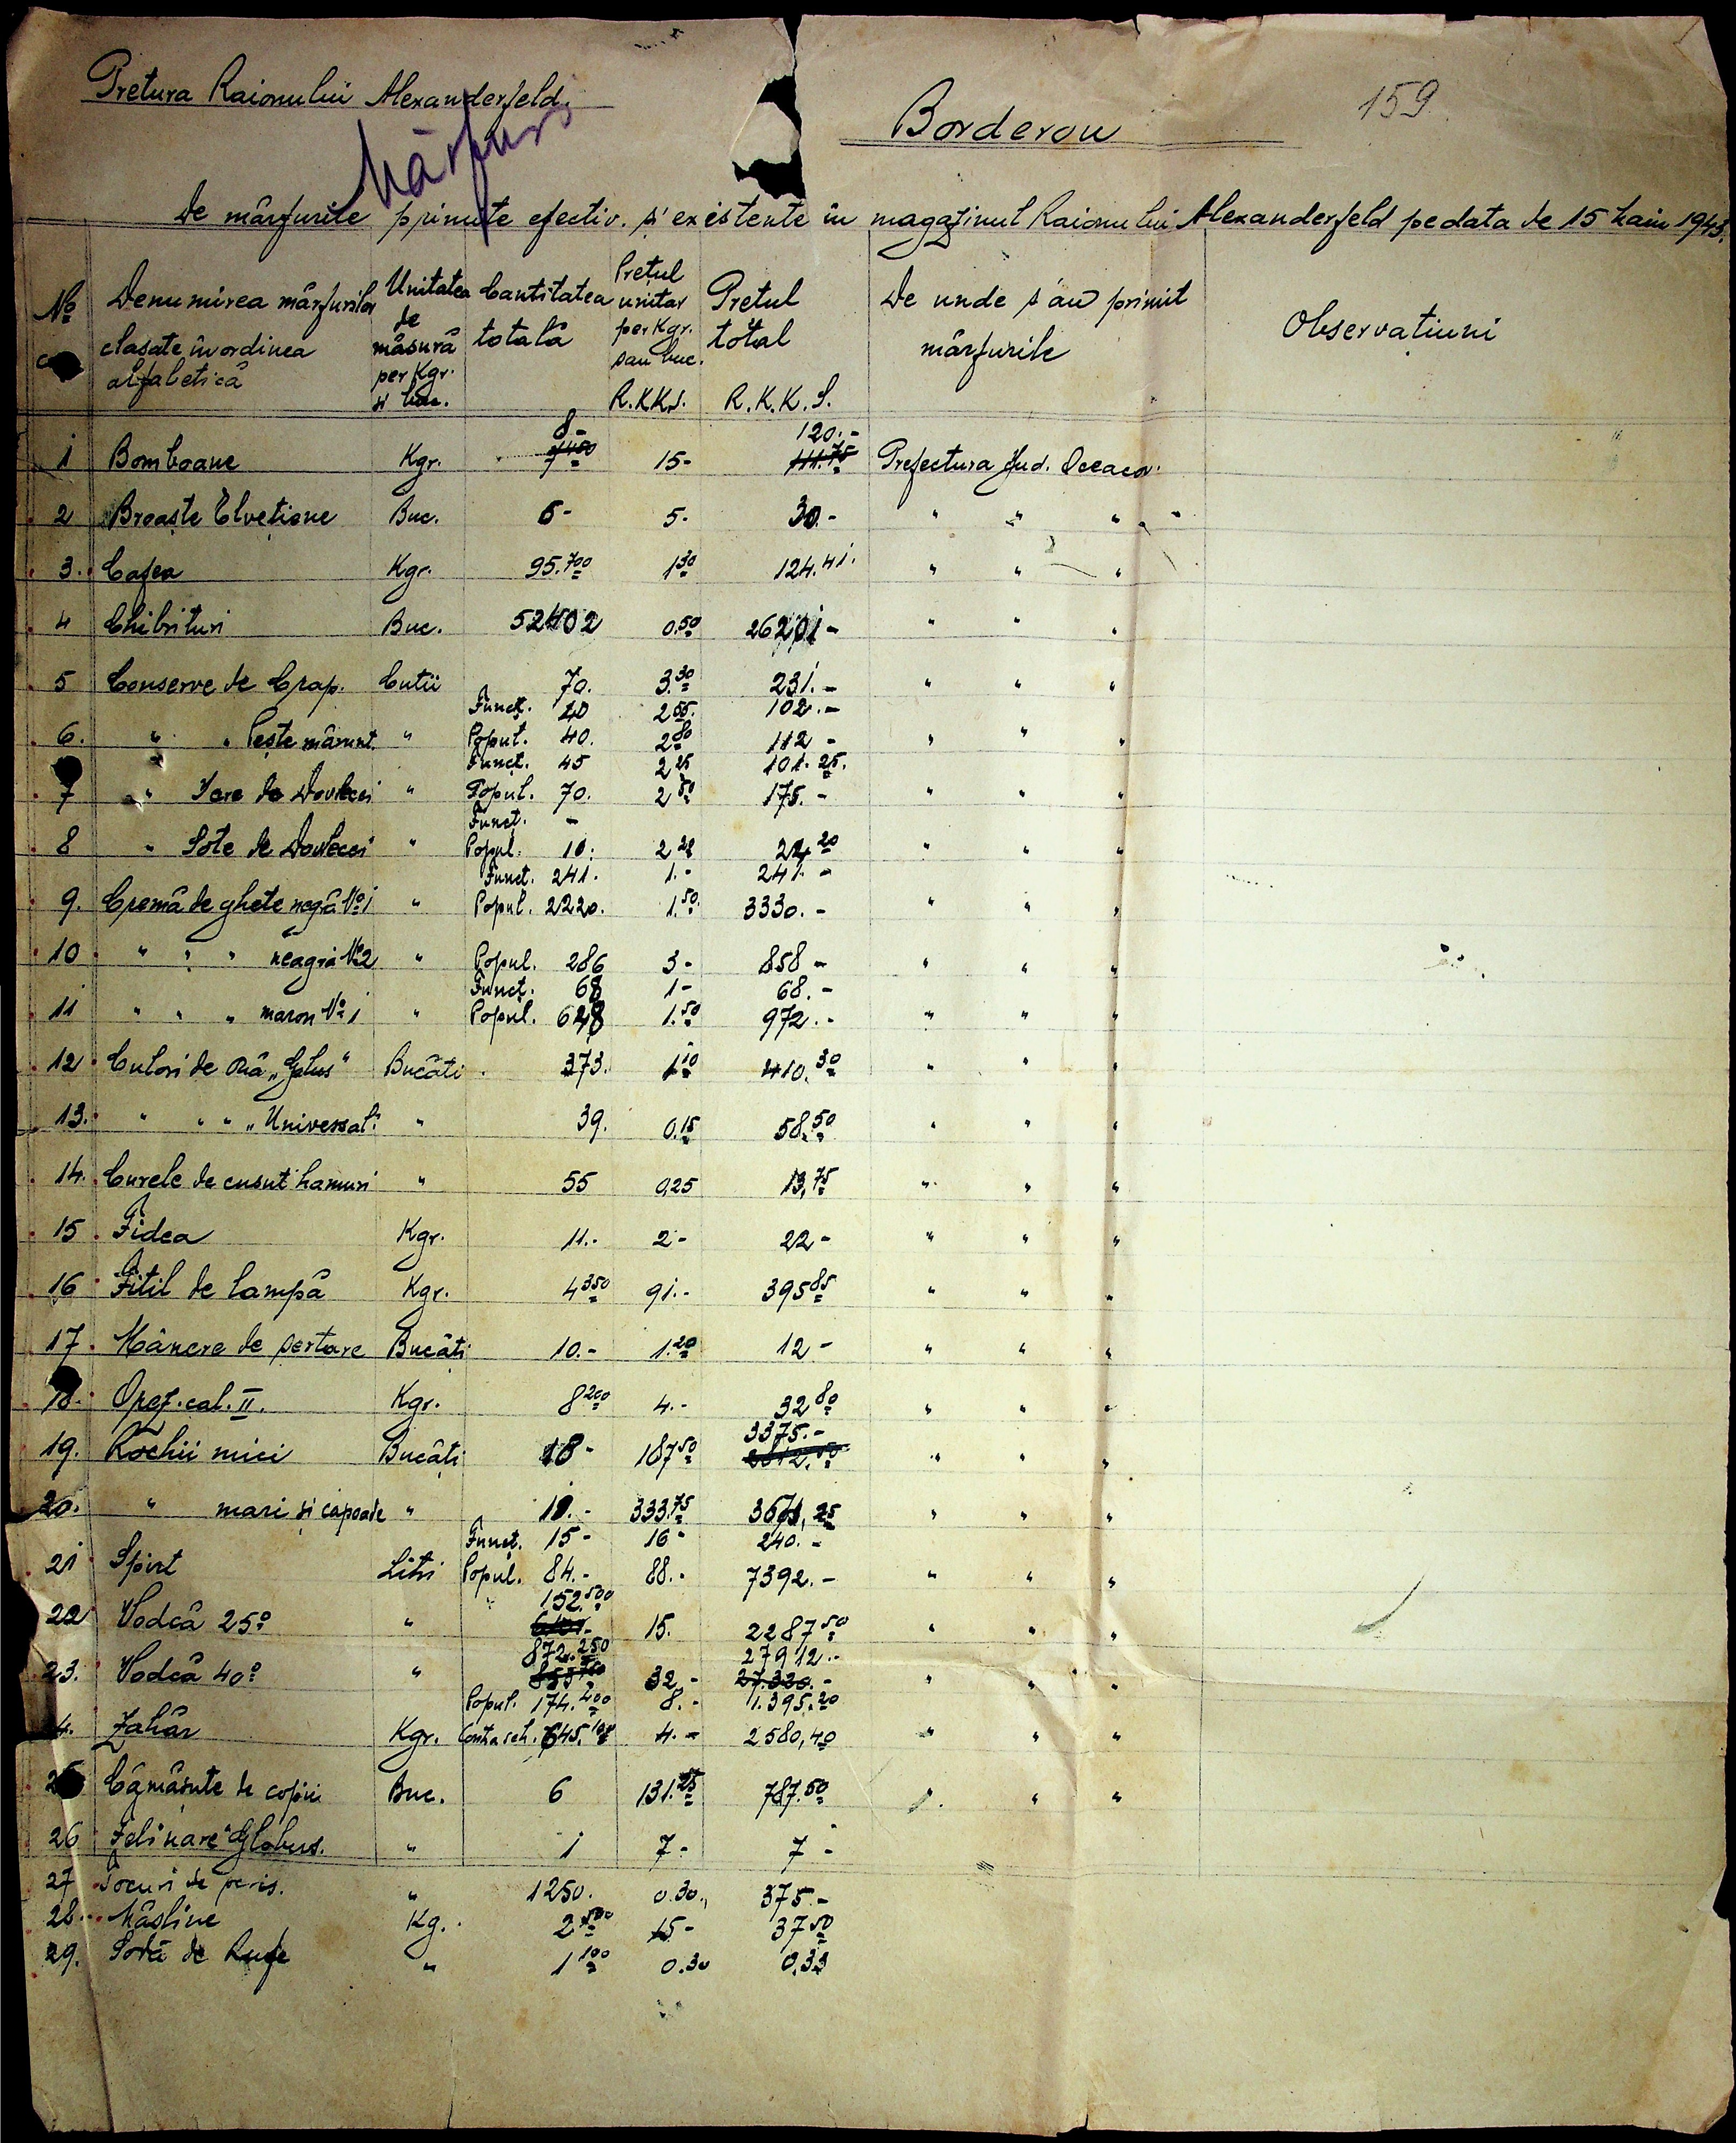 Pretura Raionului Alexanderfeld.
Mărfuri
159
Borderou
De mărfurile primite efectiv. și existente în magazinul Raionului Alexanderfeld pe data de 15 Maiu 1943.
No Denumirea mărfurilor clasate în ordinea alfabetică Unitatea de măsură per Kgr. si buc. Cantitatea totală Prețul unitar per Kgr. sau buc. R.K.K.S. Pretul total R.K.K.S. De unde s'au primit mărfurile Observațiuni
8- 120.-
1 Bomboane Kgr. 7450 15- 111.75 Prefectura Jud. Oceacov
2 Broaște Elvețiene Buc. 6- 5- 30.- " " "
3. Cafea Kgr. 95.700 1 30 124.41. " " "
4 Chibrituri Buc. 52402 0.50 26201- " " "
5 Conserve de Crap. Cutii 70. 3.30 231.- " " "
Funcț. 40 2 55. 102.-
6. " " Pește mărunt. " Popul. 40. 2 80 112- " " "
Funcț. 45 2 25 101.25.
7 " Icre de Dovlecei " Popul. 70. 2 50 175.- " " "
Funcț. -
8 " Sote de Dovlecei " Popul. 10. 2 22 22 20 " " "
Funct. 241. 1.- 241.-
9. Cremă de ghete negă No 1 " Popul. 2220. 1.50 3330.- " " "
10 " " " neagră No 2 " Popul. 286 3- 858- " " "
Funcț. 68 1- 68.-
11 " " " maron No 1 " Popul. 648 1.50 972.- " " "
12 Culori de Ouă "Gelus" Bucăti 373. 1 10 410.30 " " "
13. " " " "Universal" " 39. 0.15 58.50 " " "
14. Curele de cusut hamuri " 55 0,25 13,75 " " "
15 Fidea Kgr. 11.- 2- 22- " " "
16 Fitil de lampă Kgr. 4 350 91.- 395 85 " " "
17. Mânere de sertare Bucăti 10.- 1.20 12- " " "
18. Orez. cal. II. Kgr. 8 200 4.- 32 80 " " "
3375.-
19. Rochii mici Bucăți 18- 187 50 2812.50 " " "
20. " mari și capoade " 11.- 333.75 3671,25 " " "
Funcț. 15- 16- 240.-
21 Spirt Litri Popul. 84.- 88.- 7392.- " " "
152.500
22 Vodcă 25° " 15. 2287 50 " " "
872.250 27912.-
23. Vodcă 40° " 32.- 27.330.- " " "
Popul. 174.400 8.- 1.395.20
4. Zahăr Kgr. Contra sch. 645.100 4.- 2580,40 " " "
25 Cămăsute de copii Buc. 6 131.25 787.50 " " "
26 Felinare "Globus. " 1 7- 7-
27 Tocuri de peris. " 1250. 0.30. 375.-
28. Măsline Kg. 2 500 15- 37 50
29. Sodă de Rufe " 1 100 0.30 0.33